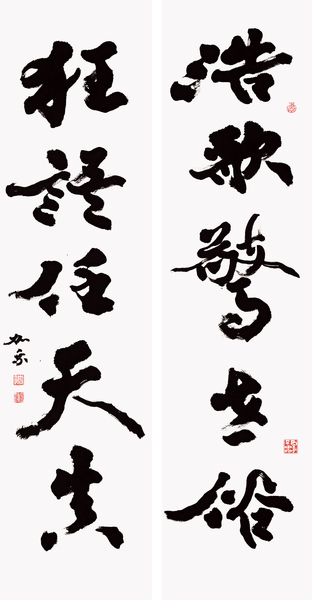 浩歌驚世俗
狂語任天真